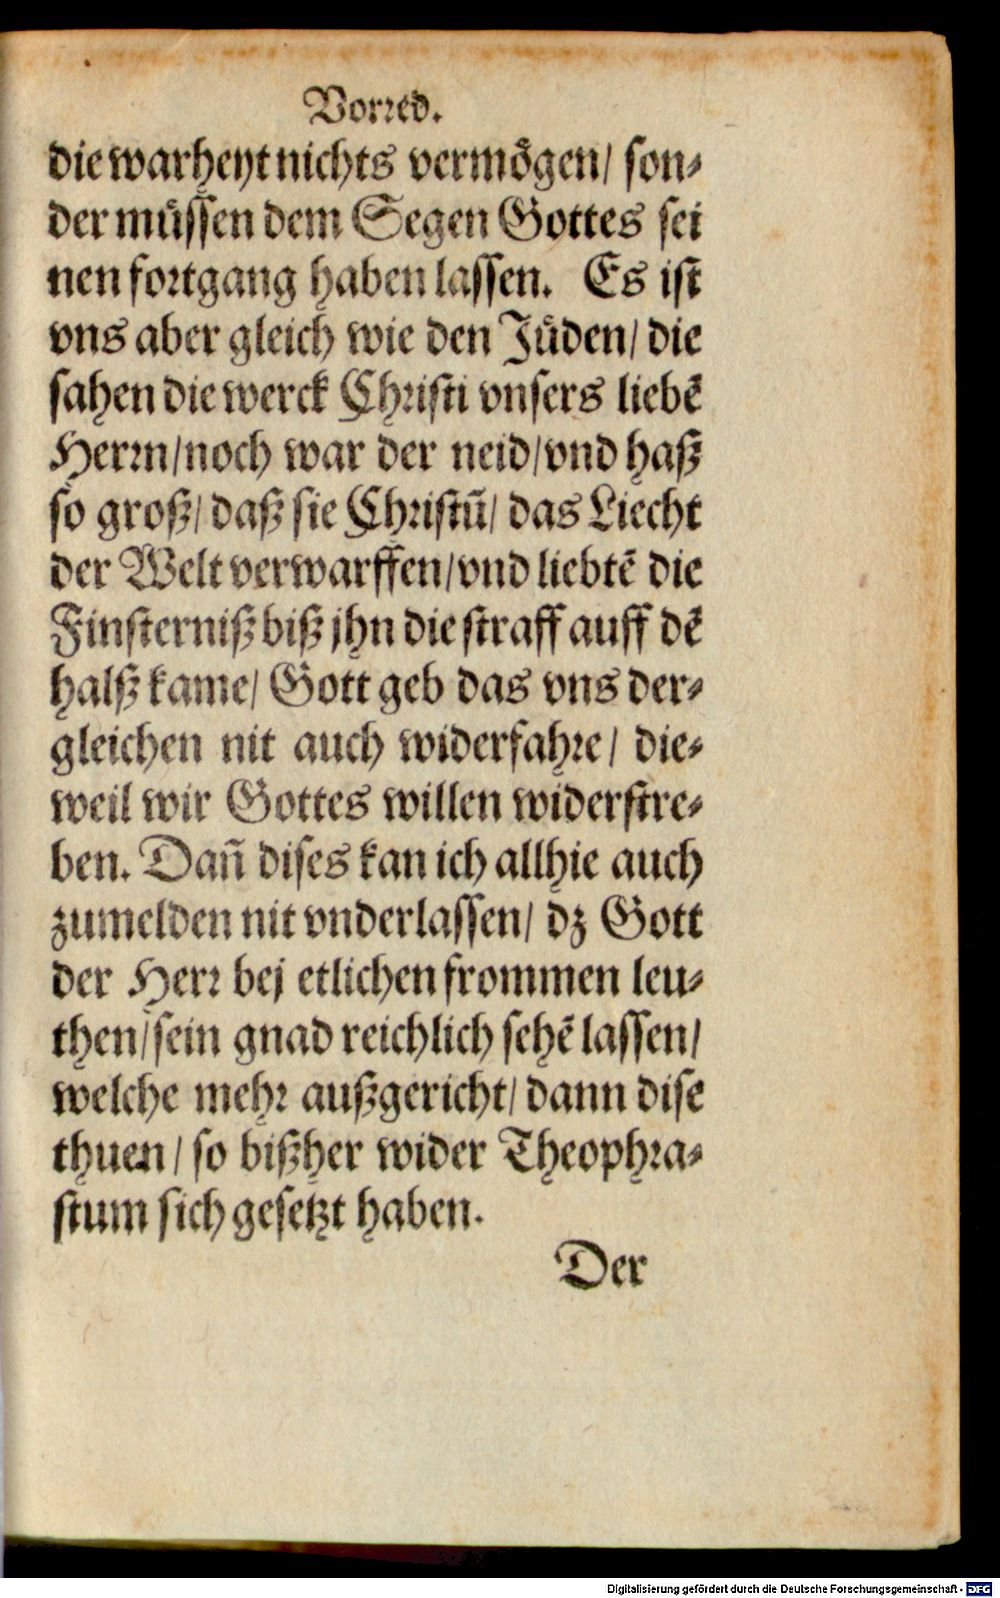 Vorred.
die warheyt nichts vermoͤgen/ son-
der muͤssen dem Segen Gottes sei
nen fortgang haben lassen. Es ist
vns aber gleich wie den Juͤden/ die
sahen die werck Christi vnsers liebē
Herrn/noch war der neid/vnd haß
so groß/ daß sie Christū/ das Liecht
der Welt verwarffen/vnd liebtē die
Finsterniß biß jhn die straff auff dē
halß kame/ Gott geb das vns der-
gleichen nit auch widerfahre/ die-
weil wir Gottes willen widerstre-
ben. Dañ dises kan ich allhie auch
zumelden nit vnderlassen/ dz Gott
der Herr bej etlichen frommen leu-
then/sein gnad reichlich sehē lassen/
welche mehr außgericht/ dann dise
thuen/ so bißher wider Theophra-
stum sich gesetzt haben.
Der
Digitalisierung gefördert durch die Deutsche Forschungsgemeinschaft - DFG